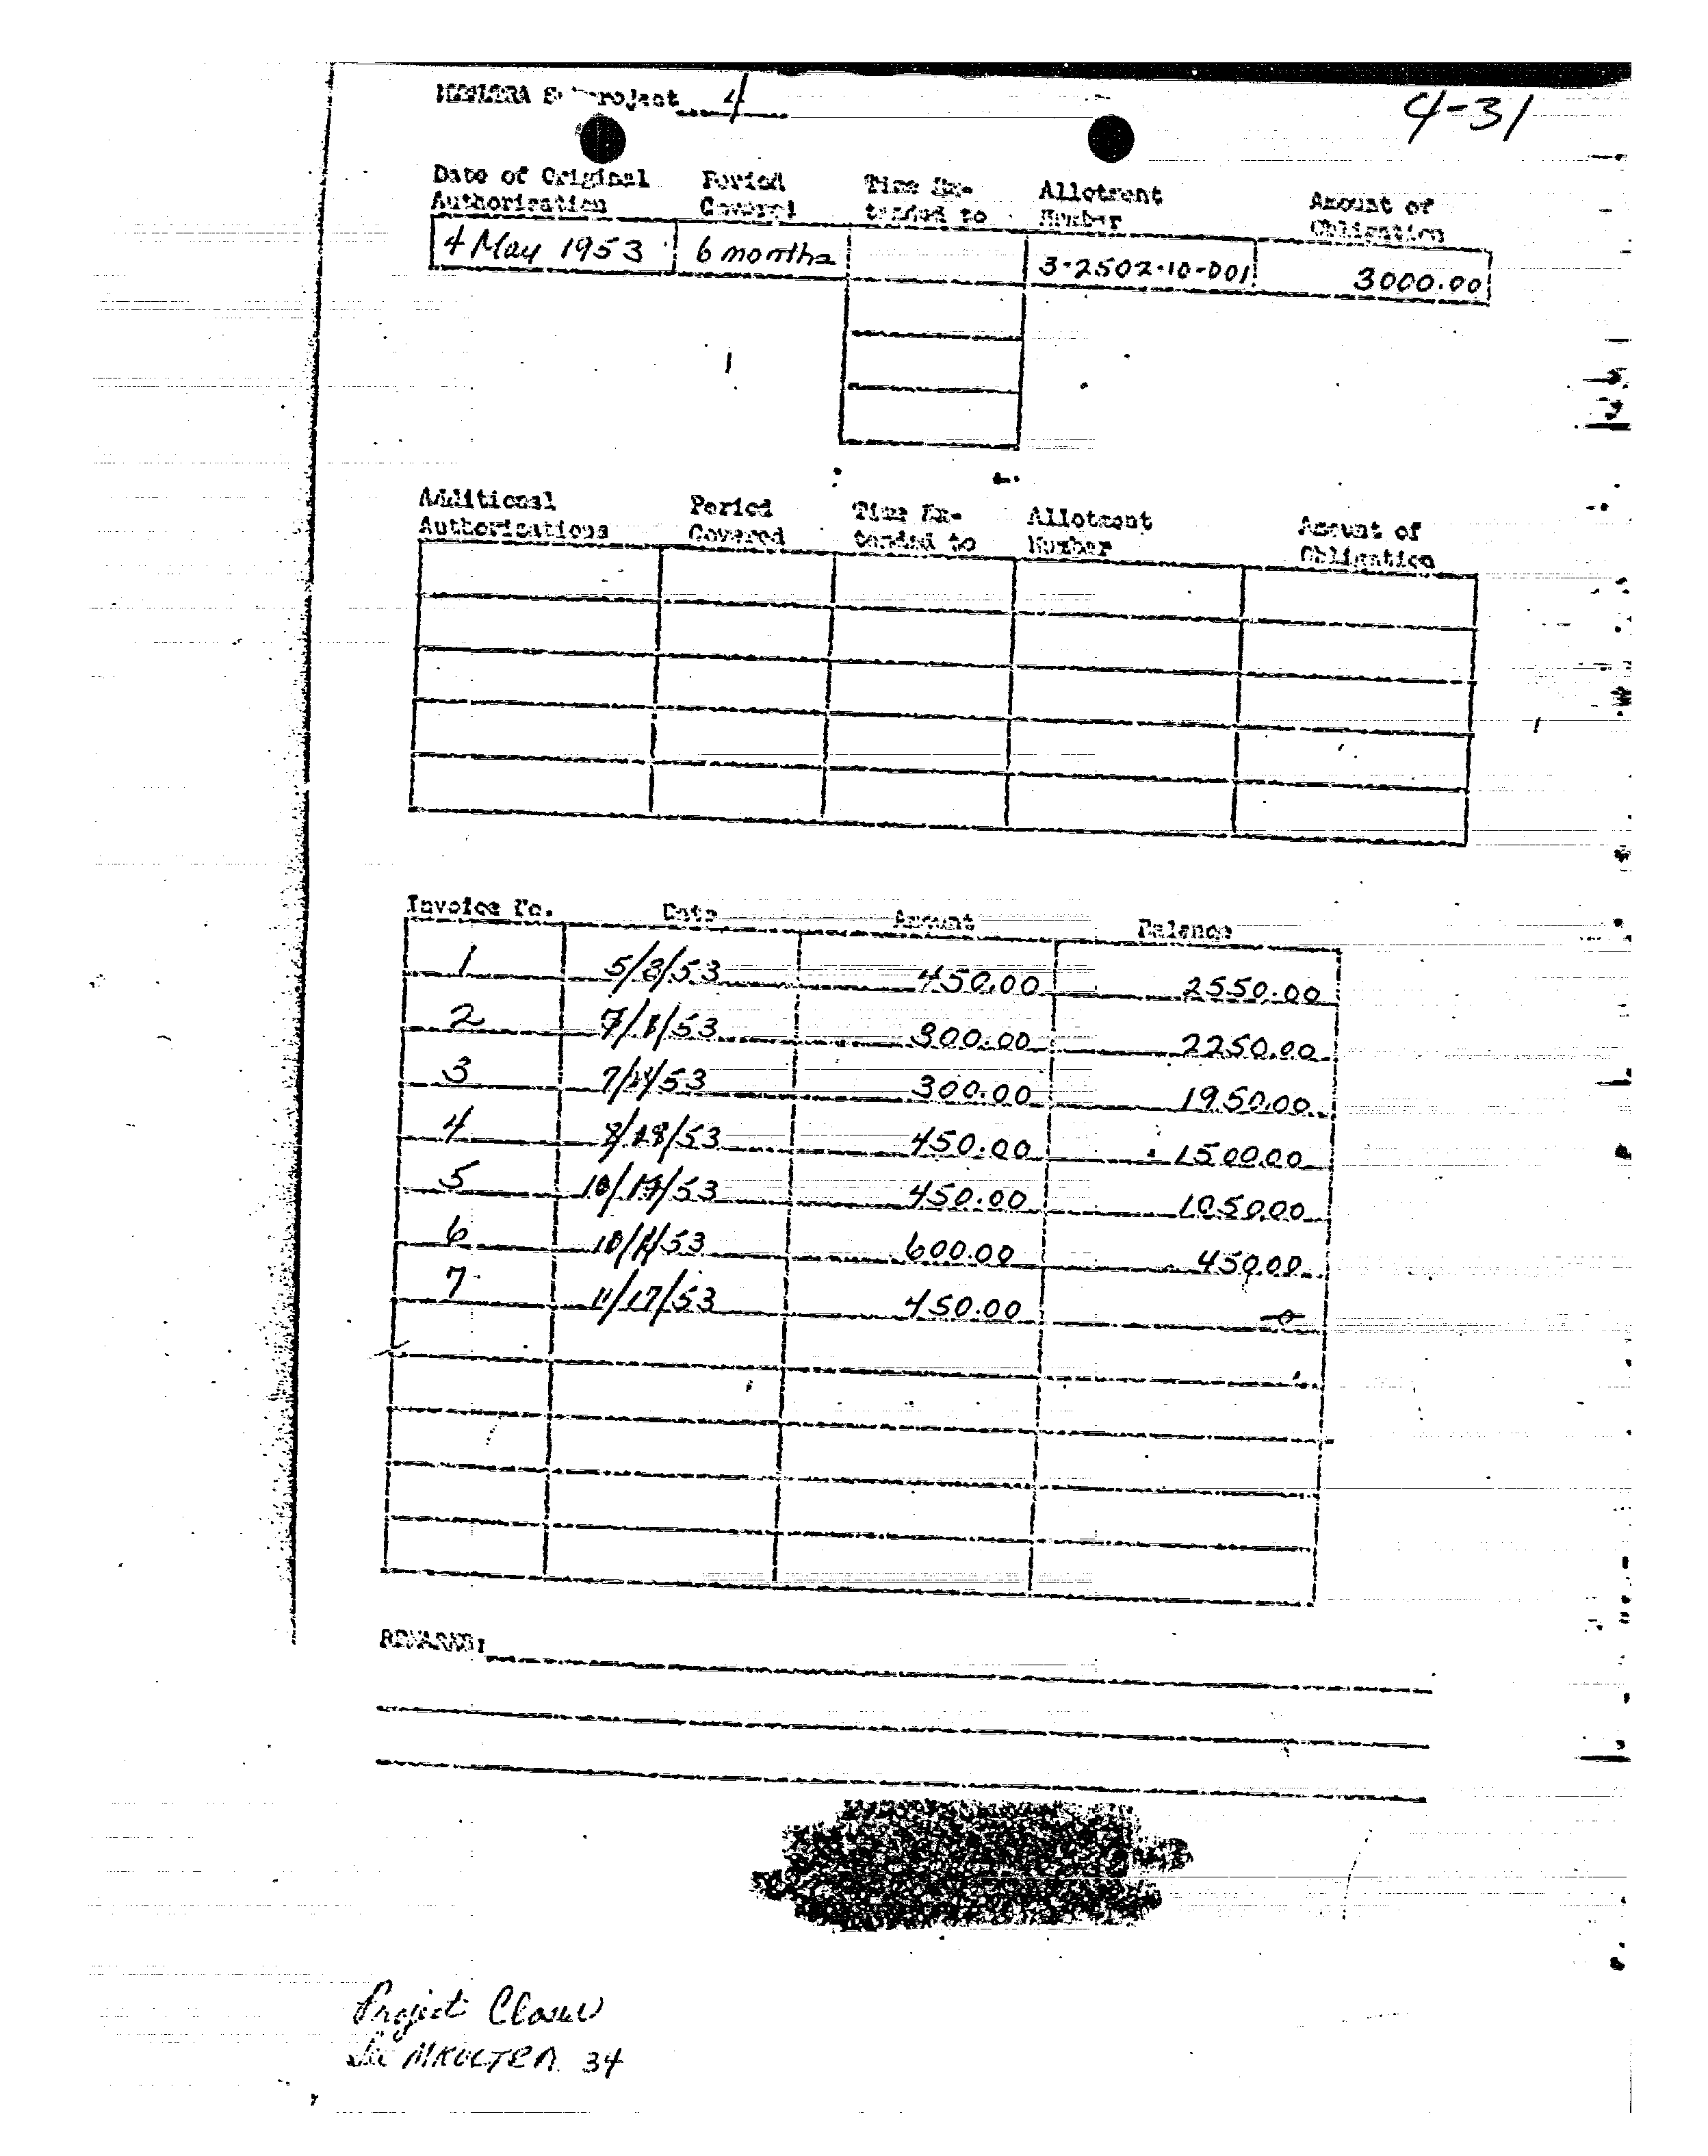 MKULTRA Subproject 4
4-31
Date of Original Authorization Period Covered Time Extended to Allotment Number Amount of Obligation
4 May 1953 6 months 3-2502-10-001 3000.00
Additional Authorizations Period Covered Time Extended to Allotment Number Amount of Obligation
Invoice No. Date Amount Balance
1 5/8/53 450.00 2550.00
2 300.00 2250.00
3 300.00 1950.00
4 450.00 1500.00
5 450.00 1050.00
6 600.00 450.00
7 11/17/53 450.00 -0-
REMARKS:
Project Closed
See MKULTRA 34